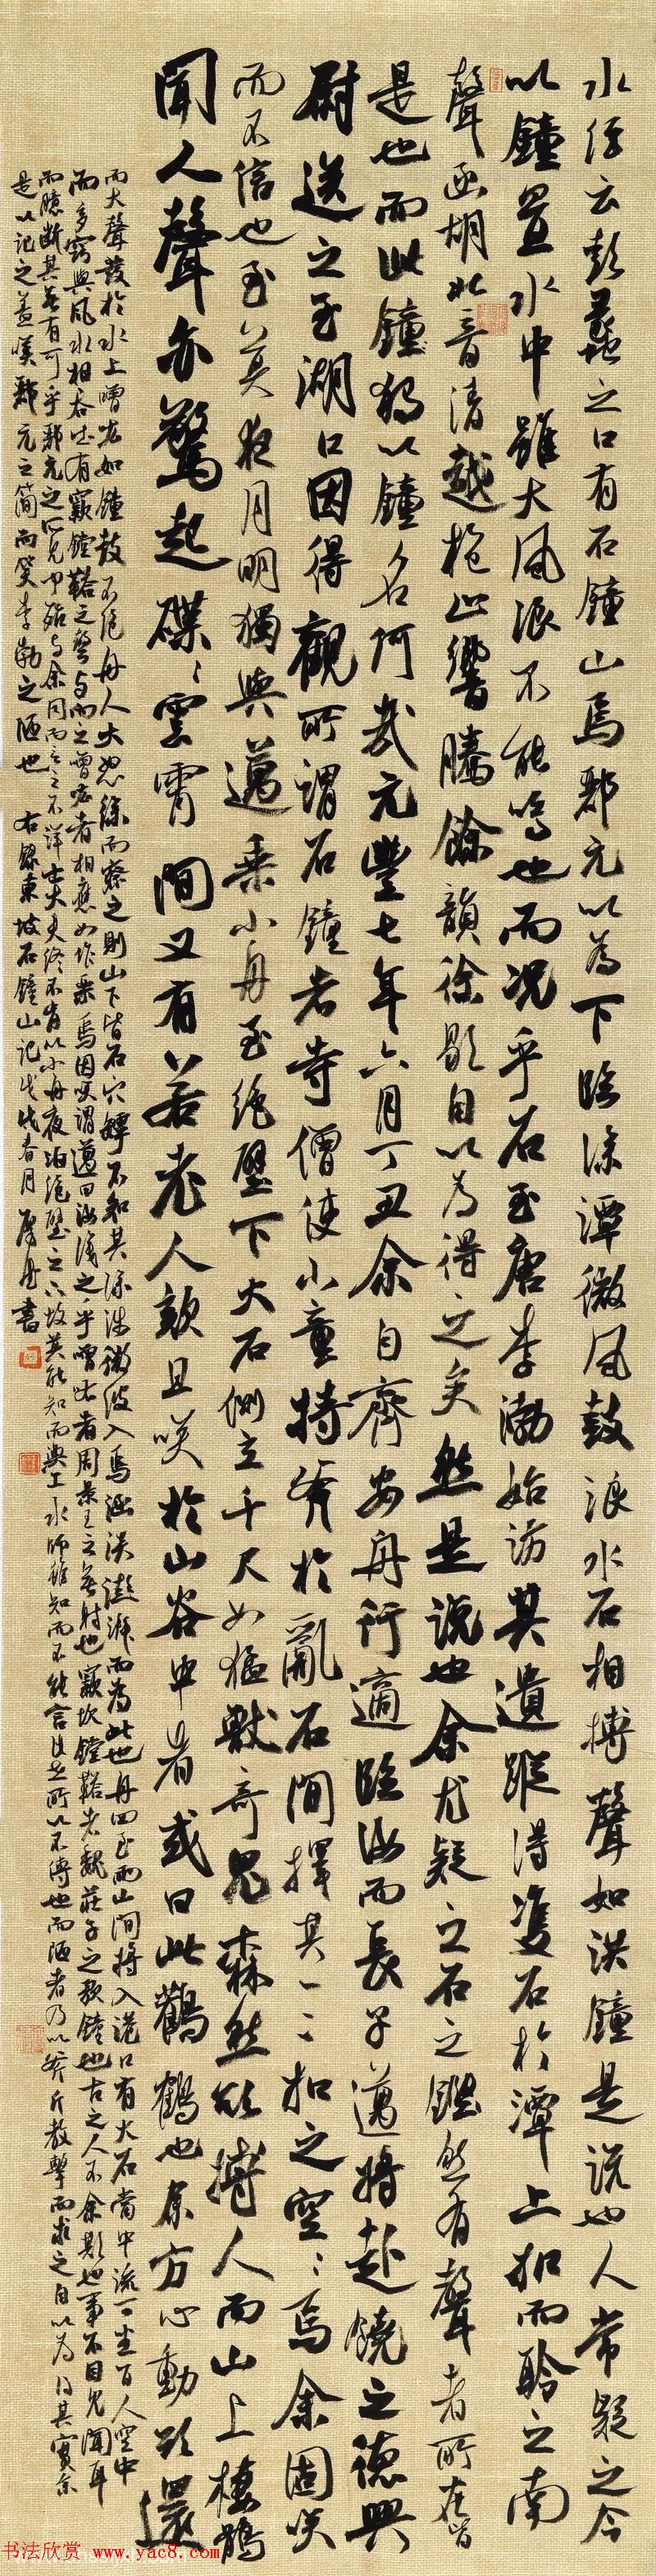 水經云彭蠡之口有石鐘山焉酈元以為下臨深潭微風鼓浪水石相搏聲如洪鐘是說也人常疑之今
以鐘置水中雖大風浪不能鳴也而況乎石至唐李渤始訪其遺蹤得雙石於潭上扣而聆之南
聲函胡北音清越枹止響騰餘韻徐歇自以為得之矣然是說也余尤疑之石之鏗然有聲者所在皆
是也而此鐘獨以鐘名何哉元豐七年六月丁丑余自齊安舟行適臨汝而長子邁將赴饒之德興
尉送之至湖口因得觀所謂石鐘者寺僧使小童持斧於亂石間擇其一二扣之空空焉余固笑
而不信也至莫夜月明獨與邁乘小舟至絕壁下大石側立千尺如猛獸奇鬼森然欲搏人而山上棲鶻
聞人聲亦驚起磔磔雲霄間又有若老人欬且笑於山谷中者或曰此鸛鶴也余方心動欲還
而大聲發於水上噌吰如鐘鼓不絕舟人大恐徐而察之則山下皆石穴罅不知其深淺微波入焉涵淡澎湃而為此也舟回至兩山間將入港口有大石當中流可坐百人空中
而多竅與風水相吞吐有窾鏜鞳之聲與向之噌吰者相應如作樂焉因笑謂邁曰汝識之乎噌吰者周景王之無射也窾坎鏜鞳者魏莊子之歌鐘也古之人不余欺也事不目見聞耳
而臆斷其無有可乎酈元之所見聞殆與余同而言之不詳士大夫終不肯以小舟夜泊絕壁之下故莫能知而漁工水師雖知而不能言此世所以不傳也而陋者乃以斧斤考擊而求之自以為得其實余
是以記之蓋嘆酈元之簡而笑李渤之陋也 右錄東坡石鐘山記戊戌春月 書
书法欣赏 www.yac8.com